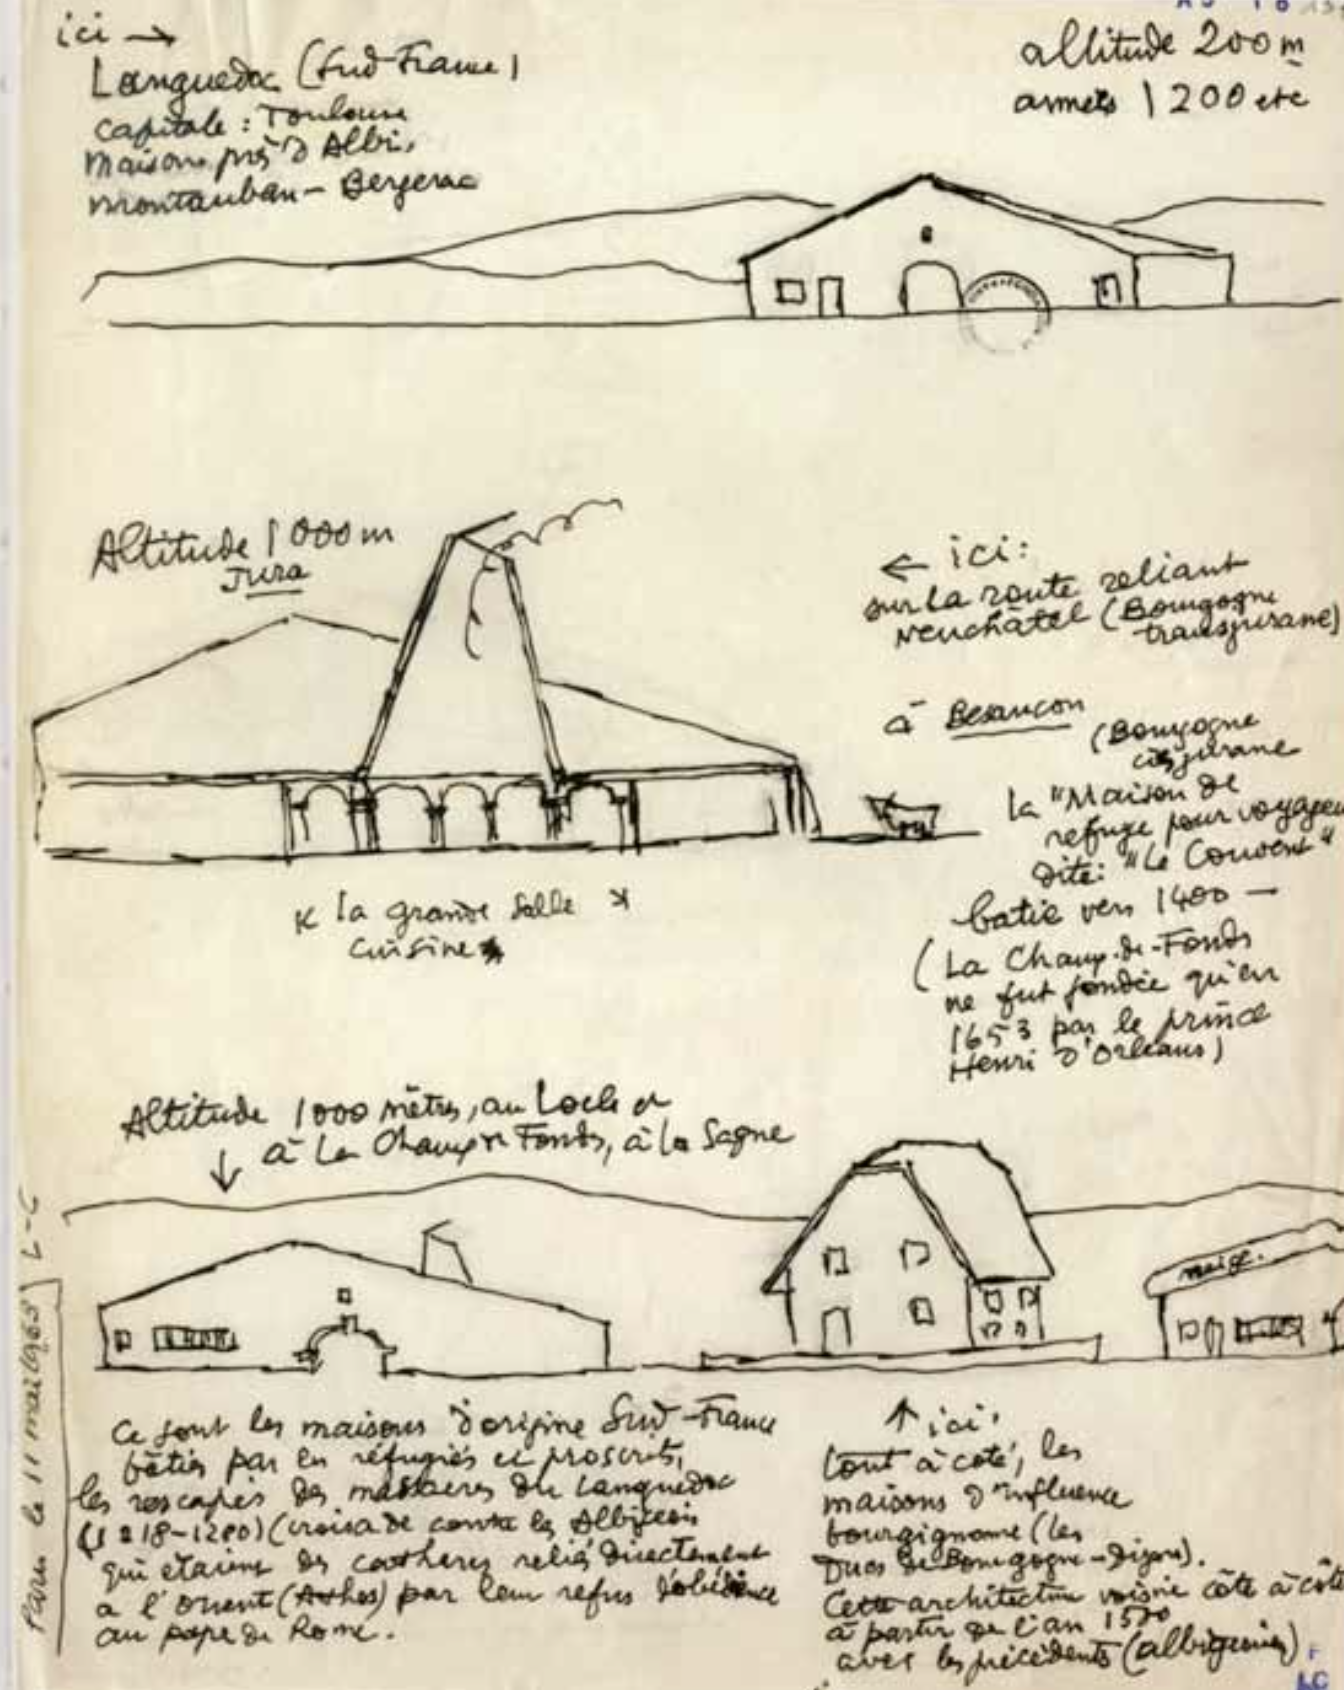 ici →
Languedoc (Sud-France)
capitale : Toulouse
maisons près d'Albi,
montauban - Bergerac
altitude 200 m
1200 etc
Altitude 1000 m
Jura
← ici :
sur la route reliant
Neuchâtel (Bourgogne
transjurane)
à Besançon
(Bourgogne
cisjurane
la "Maison de
refuge pour voyageu
dite: "Le Couvent"
batie vers 1400 —
(La Chaux-de-Fonds
ne fut fondée qu'en
1653 par le prince
Henri d'Orléans)
la grande salle
cuisine
Altitude 1000 mètres, au Locle et
à La Chaux de Fonds, à la Sagne
↓
neige.
Ce sont les maisons d'origine Sud-France
bâties par les réfugiés et proscrits,
les rescapés des massacres du Languedoc
(croisade contre les Albigeois
qui étaient des cathares reliés directement
à l'Orient (Athos) par leur refus d'obédience
au pape de Rome.
↑ ici,
tout à coté, les
maisons d'influence
bourgignonne (les
Ducs de Bourgogne - Dijon).
Cette architecture voisine côte à côte
à partir de l'an
avec les précédents (albigeoises)
Paris le 11 mai 1965 L-C